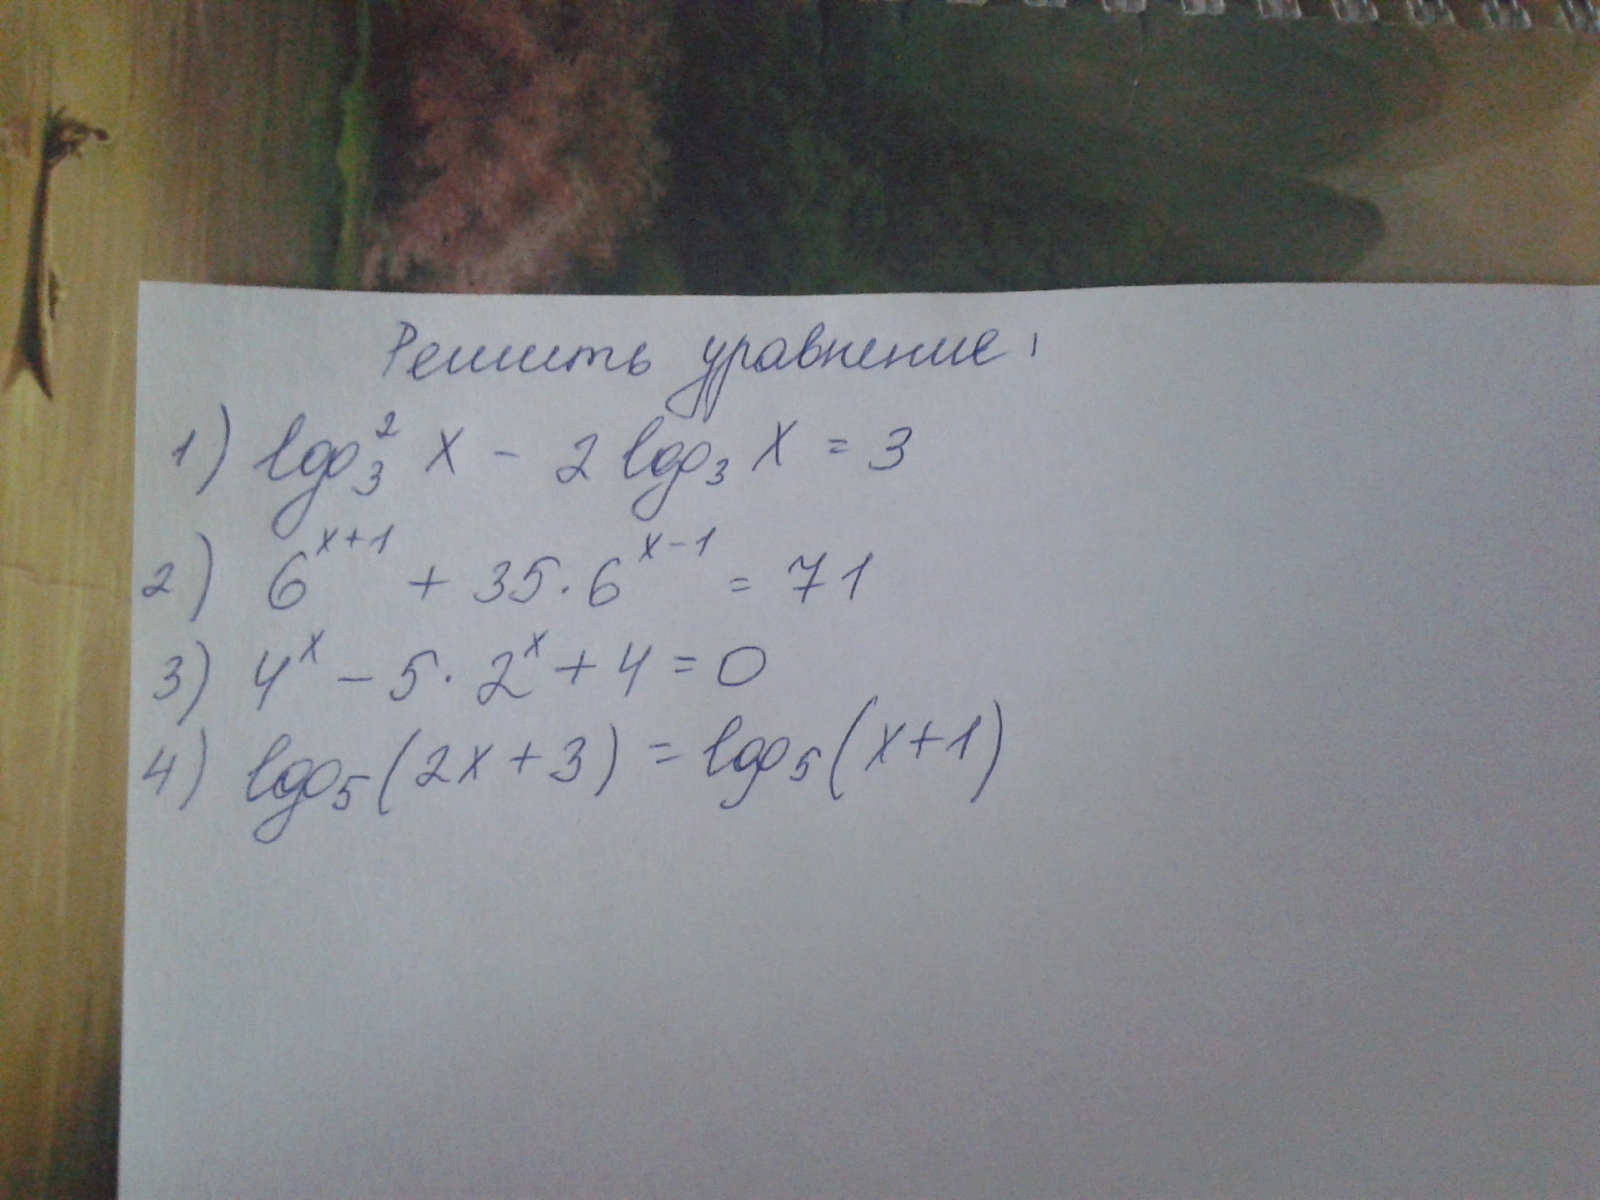 Решить уравнение:
1) log₃² x - 2 log₃ x = 3
2) 6^(x+1) + 35 · 6^(x-1) = 71
3) 4^x - 5 · 2^x + 4 = 0
4) log₅(2x+3) = log₅(x+1)